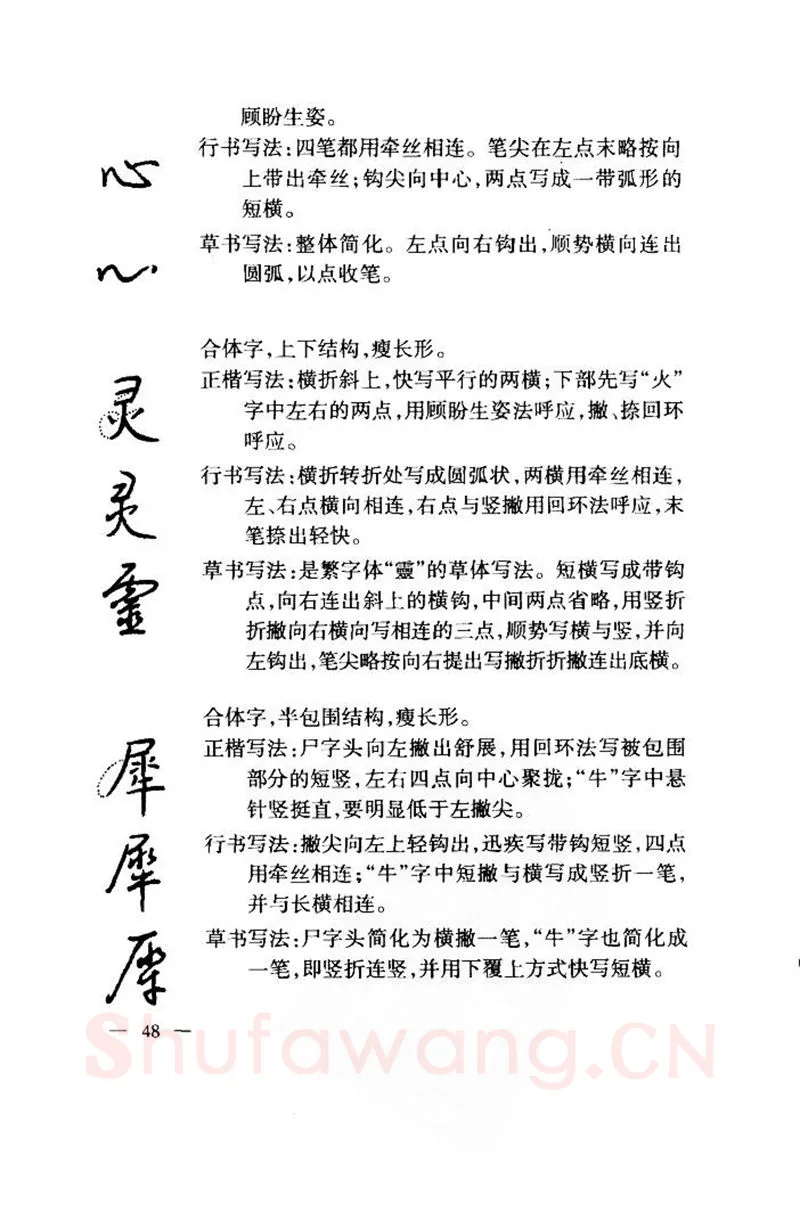 顾盼生姿。
心
行书写法:四笔都用牵丝相连。笔尖在左点末略按向
上带出牵丝;钩尖向中心,两点写成一带弧形的
短横。
心
草书写法:整体简化。左点向右钩出,顺势横向连出
圆弧,以点收笔。
合体字,上下结构,瘦长形。
灵
正楷写法:横折斜上,快写平行的两横;下部先写“火”
字中左右的两点,用顾盼生姿法呼应,撇、捺回环
呼应。
灵
行书写法:横折转折处写成圆弧状,两横用牵丝相连,
左、右点横向相连,右点与竖撇用回环法呼应,末
笔捺出轻快。
靈
草书写法:是繁字体“靈”的草体写法。短横写成带钩
点,向右连出斜上的横钩,中间两点省略,用竖折
折撇向右横向写相连的三点,顺势写横与竖,并向
左钩出,笔尖略按向右提出写撇折折撇连出底横。
合体字,半包围结构,瘦长形。
犀
正楷写法:尸字头向左撇出舒展,用回环法写被包围
部分的短竖,左右四点向中心聚拢;“牛”字中悬
针竖挺直,要明显低于左撇尖。
犀
行书写法:撇尖向左上轻钩出,迅疾写带钩短竖,四点
用牵丝相连;“牛”字中短撇与横写成竖折一笔,
并与长横相连。
犀
草书写法:尸字头简化为横撇一笔,“牛”字也简化成
一笔,即竖折连竖,并用下覆上方式快写短横。
— 48 —
Shufawang.CN